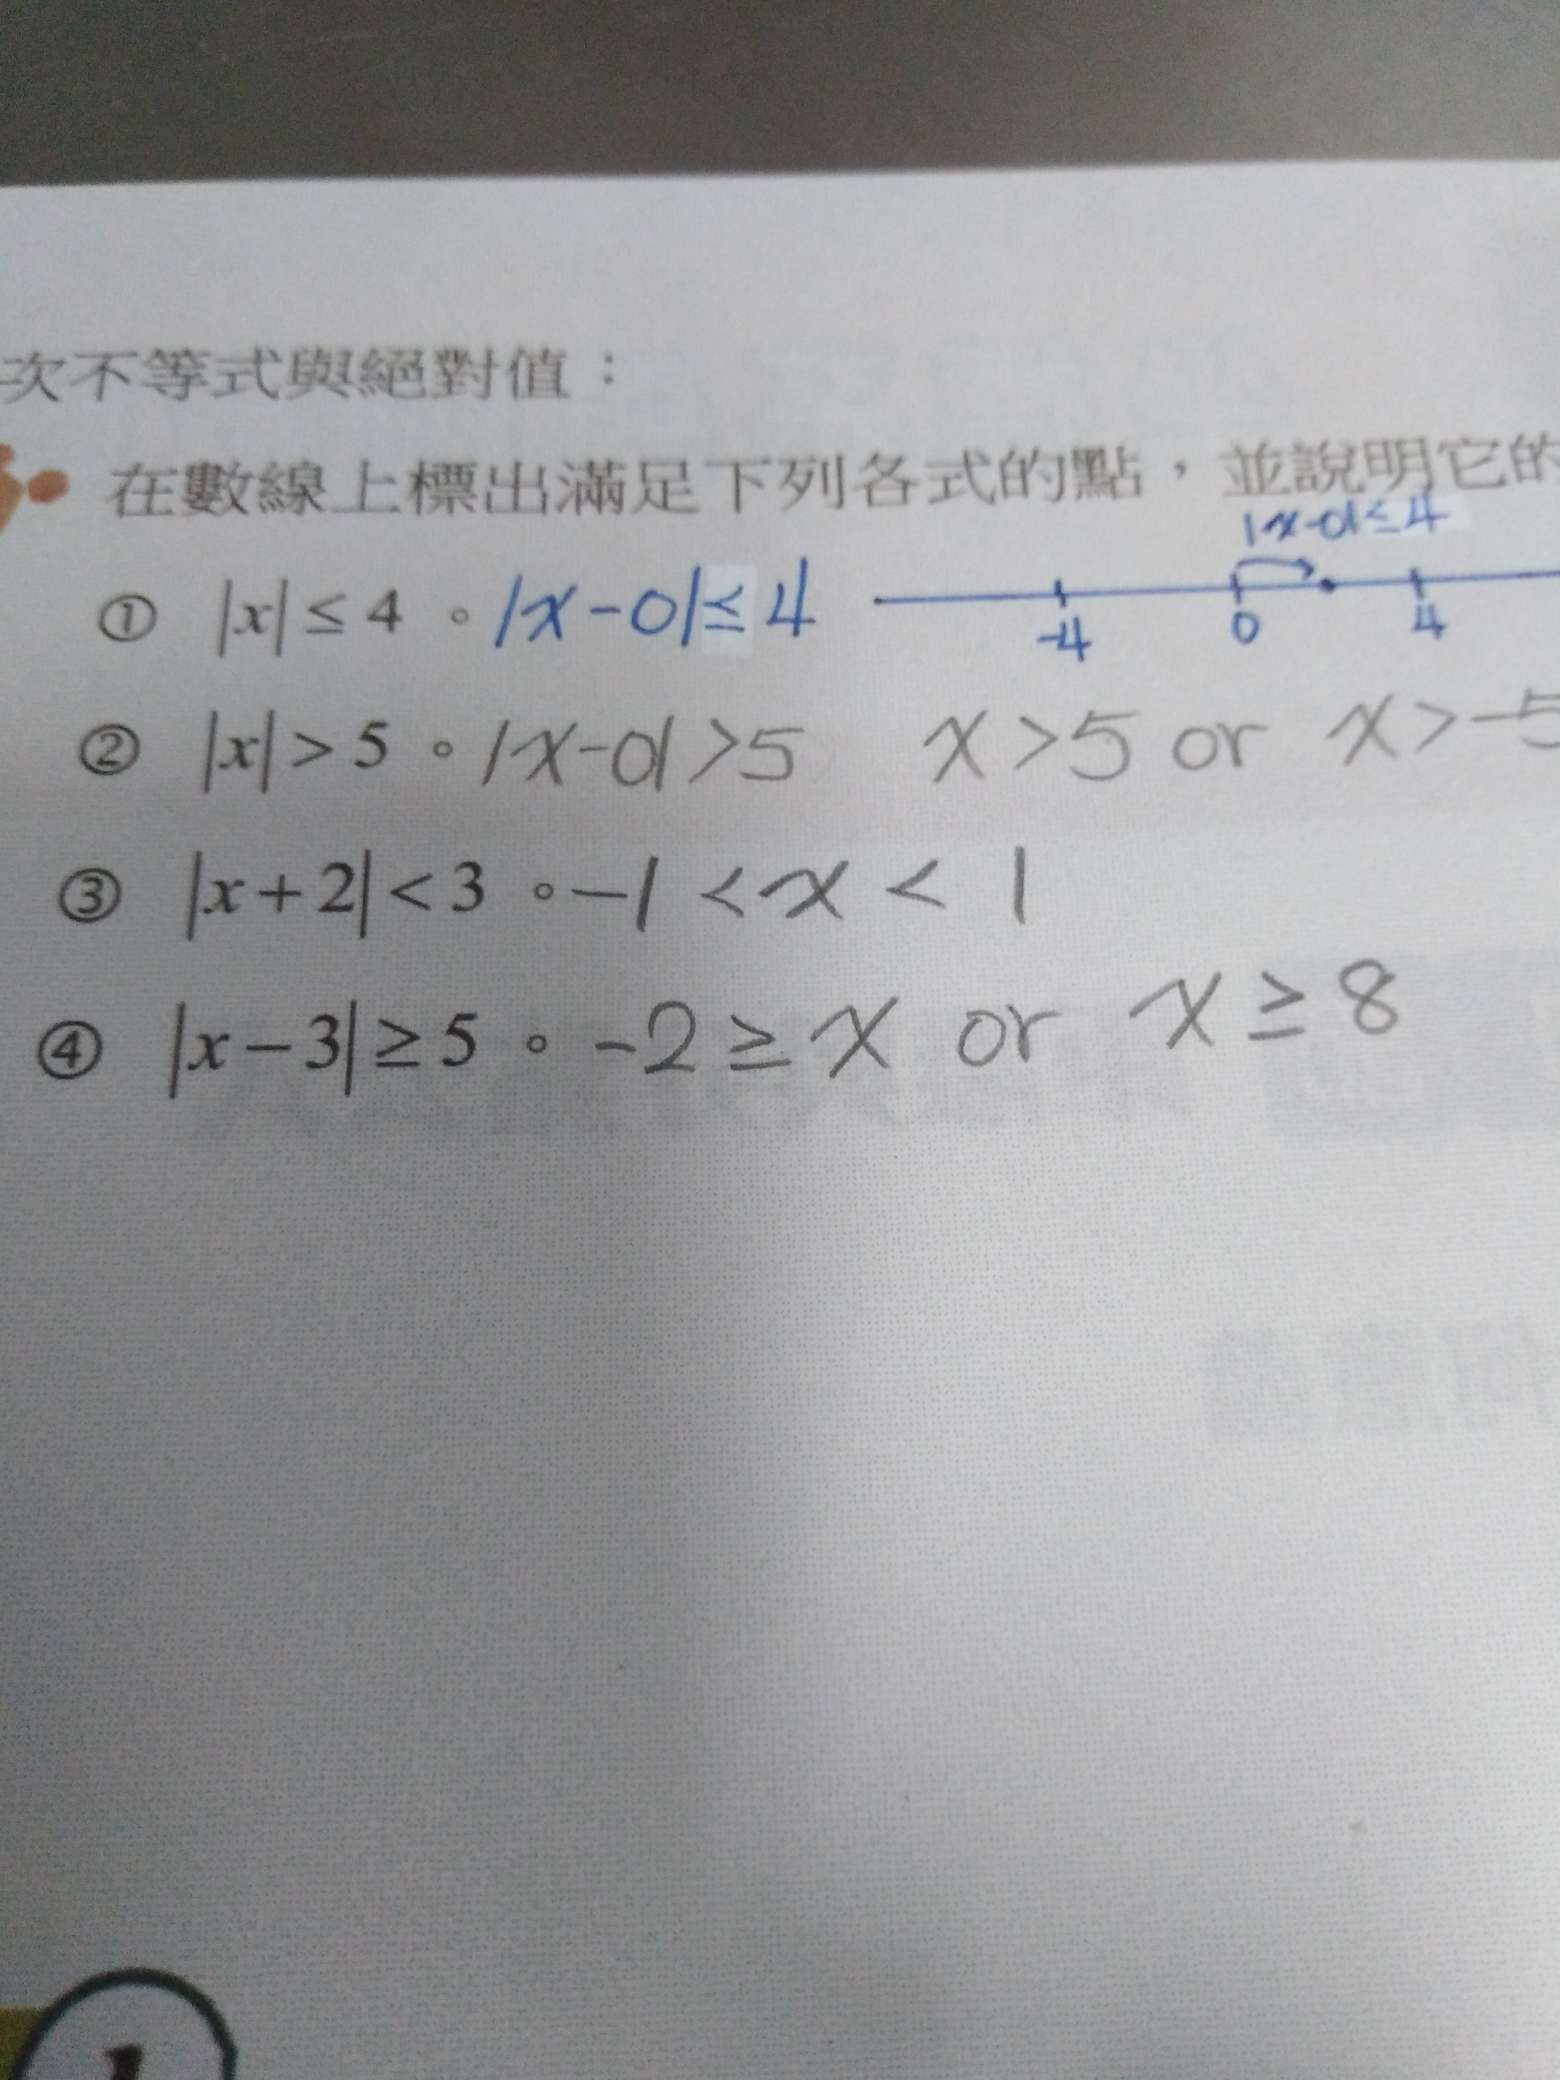 次不等式與絕對值：
在數線上標出滿足下列各式的點，並說明它的
|x-0|≤4
① |x| ≤ 4 。|x-0|≤4
-4 0 4
② |x| > 5 。|x-0|>5 x>5 or x>-5
③ |x+2| < 3 。-1 < x < 1
④ |x-3| ≥ 5 。-2 ≥ x or x ≥ 8